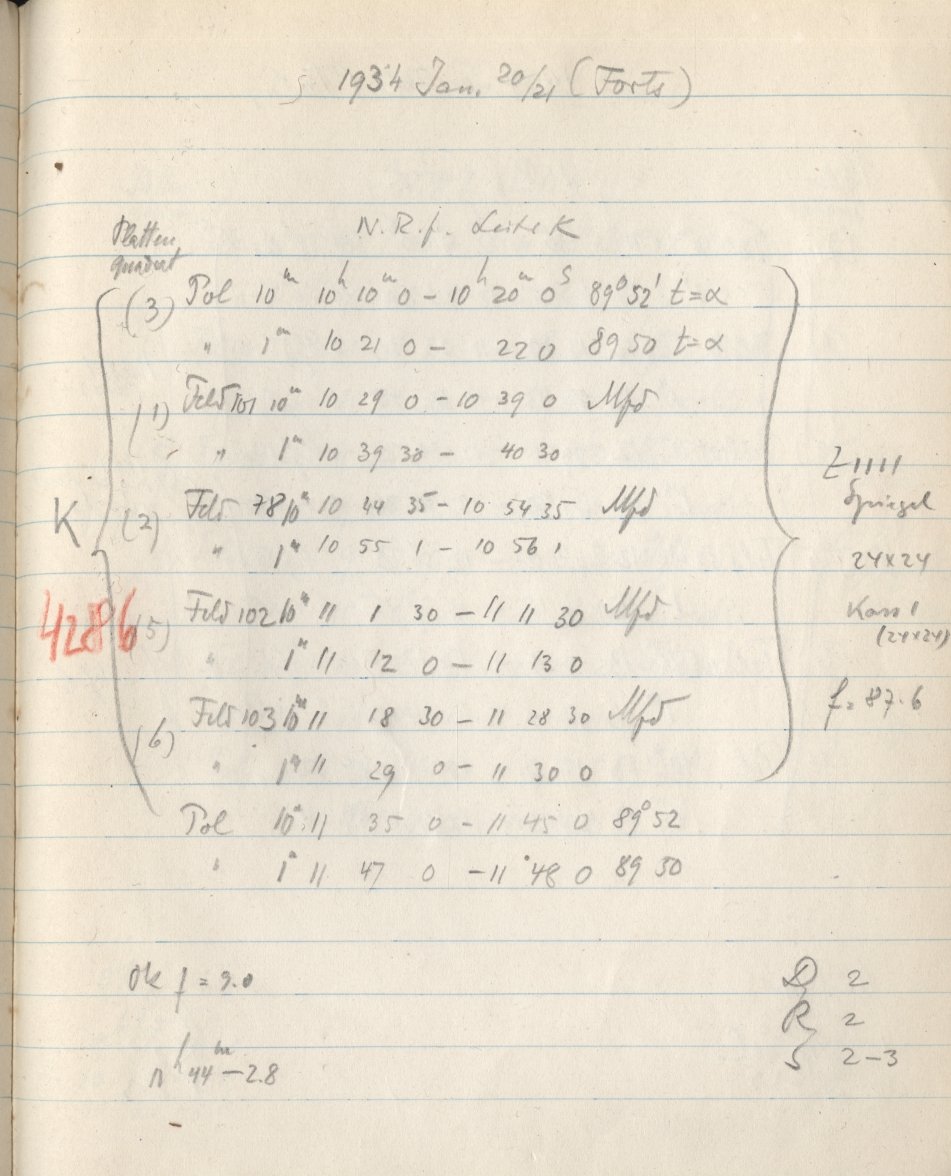 1934 Jan. 20/21 (Forts)
N.R.f. Leite K
Platten
quadrat
(3) Pol 10ᵐ 10ʰ 10ᵐ 0 – 10ʰ 20ᵐ 0ˢ 89° 52' t=α
" 1ᵐ 10 21 0 – 22 0 89 50 t=α
(1) Feld 101 10ᵐ 10 29 0 – 10 39 0 Mfd
" 1ᵐ 10 39 30 – 40 30
(2) Feld 78 10ᵐ 10 44 35 – 10 54 35 Mfd
" 1ᵐ 10 55 1 – 10 56 1
K
4286
(5) Feld 102 10ᵐ 11 1 30 – 11 11 30 Mfd
" 1ᵐ 11 12 0 – 11 13 0
(6) Feld 103 10ᵐ 11 18 30 – 11 28 30 Mfd
" 1ᵐ 11 29 0 – 11 30 0
Pol 10ᵐ 11 35 0 – 11 45 0 89° 52
" 1ᵐ 11 47 0 – 11 48 0 89 50
Z 1111
Spiegel
24×24
Kass 1
(24×24)
f = 87.6
Ok f = 9.0
11ʰ 44ᵐ – 2.8
D 2
R 2
S 2–3